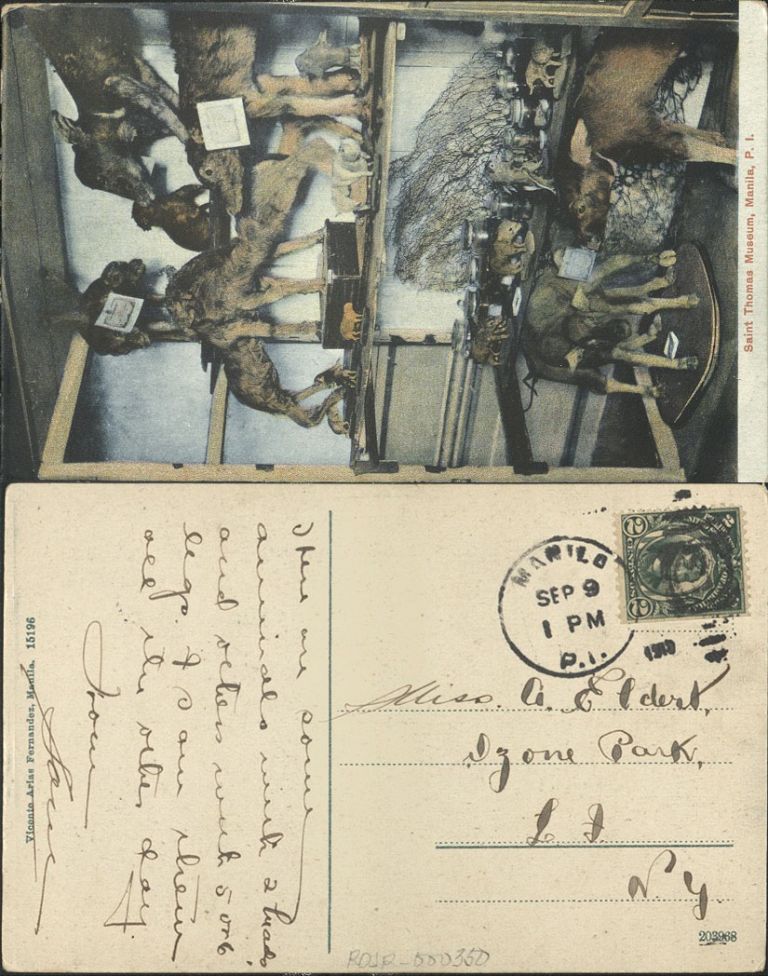 Saint Thomas Museum, Manila, P. I.
There are some
animals with 2 heads
and others with 5 or 6
legs. I saw them
all the other day.
From
Vicente Arias Fernandez, Manila. 15196
MANILA
SEP 9
1 PM
P.I.
1910
2
2
Miss. A. Eldert,
Ozone Park,
L I.
N. Y.
203968